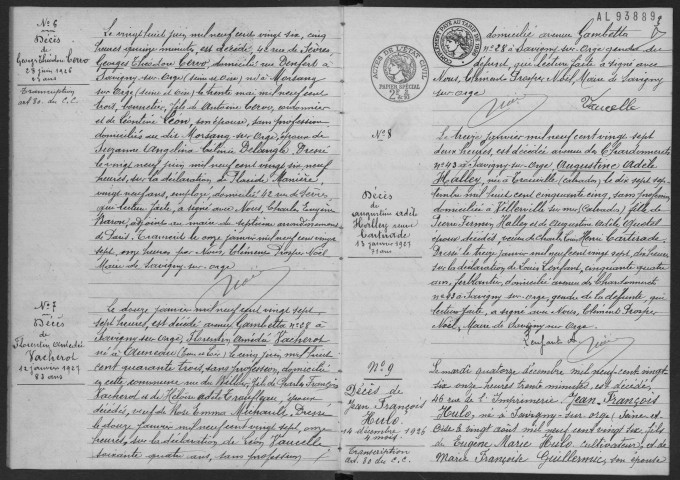 N° 6
Décès
de
Georges Théodore Cerro
28 juin 1926
Transcription
art. 80. du C. C.
Le vingt huit juin mil neuf cent vingt six, cinq
heures quinze minutes, est décédé, 42 rue de Sèvres,
Georges Théodore Cerro, domicilié rue Danfert à
Savigny-sur-Orge (Seine et Oise) né à Morsang
sur-Orge (Seine et Oise) le trente mai mil neuf cent
trois, fils de Antoine Cerro,
et de Léontine Léon, son épouse, sans profession
domiciliés au dit Morsang sur-Orge, époux de
Suzanne Angelina Delangle. Dressé
le vingt neuf juin mil neuf cent vingt six, neuf
heures, sur la déclaration de Manière,
vingt neuf ans, employé, domicilié 42 rue de Sèvres,
qui lecture faite, a signé avec Nous, Charles Eugène
Baron, adjoint au maire du septième arrondissement
de Paris. Transcrit le onze janvier mil neuf cent vingt
sept, onze heures par Nous, Clément Prosper Noël,
Maire de Savigny-sur-Orge
N° 7
Décès
de
Florentin Amédée
Vacherot
12 janvier 1927
83 ans
Le douze janvier mil neuf cent vingt sept,
sept heures, est décédé avenue Gambetta n° 28 à
Savigny-sur-Orge, Florentin Amédée Vacherot
né à Auneau (Eure et Loir) le cinq juin mil huit
cent quarante trois, sans profession, domicilié
en cette commune, rue du fils de Charles François
Vacherot et de époux
décédés, veuf de Rose Emma Michault. Dressé
le douze janvier mil neuf cent vingt sept, onze
heures, sur la déclaration de Léon Vaucelle
soixante quatre ans, sans profession,
AL 93889
ACTES DE L'ÉTAT CIVIL
PAPIER SPÉCIAL
domicilié avenue Gambetta
n° 28 à Savigny-sur-Orge gendre du
défunt, qui lecture faite, a signé avec
Nous, Clément Prosper Noël, Maire de Savigny
sur-Orge
Vaucelle
N° 8
Décès
de
Augustine Adèle
Halley veuve
Carterade
13 janvier 1927
71 ans
Le treize janvier mil neuf cent vingt sept
deux heures, est décédée avenue du Chardonnerets
n° 43 à Savigny-sur-Orge, Augustine Adèle
Halley, née à Trouville (Calvados) le dix sept
tembre mil huit cent cinquante cinq, sans profession
domiciliée à Villerville sur mer (Calvados) fille de
Pierre Ferme Halley et de Augustine Adèle
époux décédés, veuve de Charles Henri Carterade.
Dressé le treize janvier mil neuf cent vingt sept, dix heures
sur la déclaration de Louis Lenfant, cinquante quatre
ans, ferblantier, domicilié avenue du Chardonnerets
n° 43 à Savigny-sur-Orge, gendre de la défunte, qui
lecture faite, a signé avec Nous, Clément Prosper
Noël, Maire de Savigny-sur-Orge.
Lenfant
N° 9
Décès de
Jean François
Hulo
14 décembre 1926
4 mois.
Transcription
art. 80 du C. C.
Le mardi quatorze décembre mil neuf cent vingt
six onze heures trente minutes est décédé,
46 rue de l'Imprimerie, Jean François
Hulo, né à Savigny-sur-Orge (Seine et
Oise) le vingt août mil neuf cent vingt six, fils
de Eugène Marie Hulo, cultivateur, et de
Marie Françoise Guillermic, son épouse